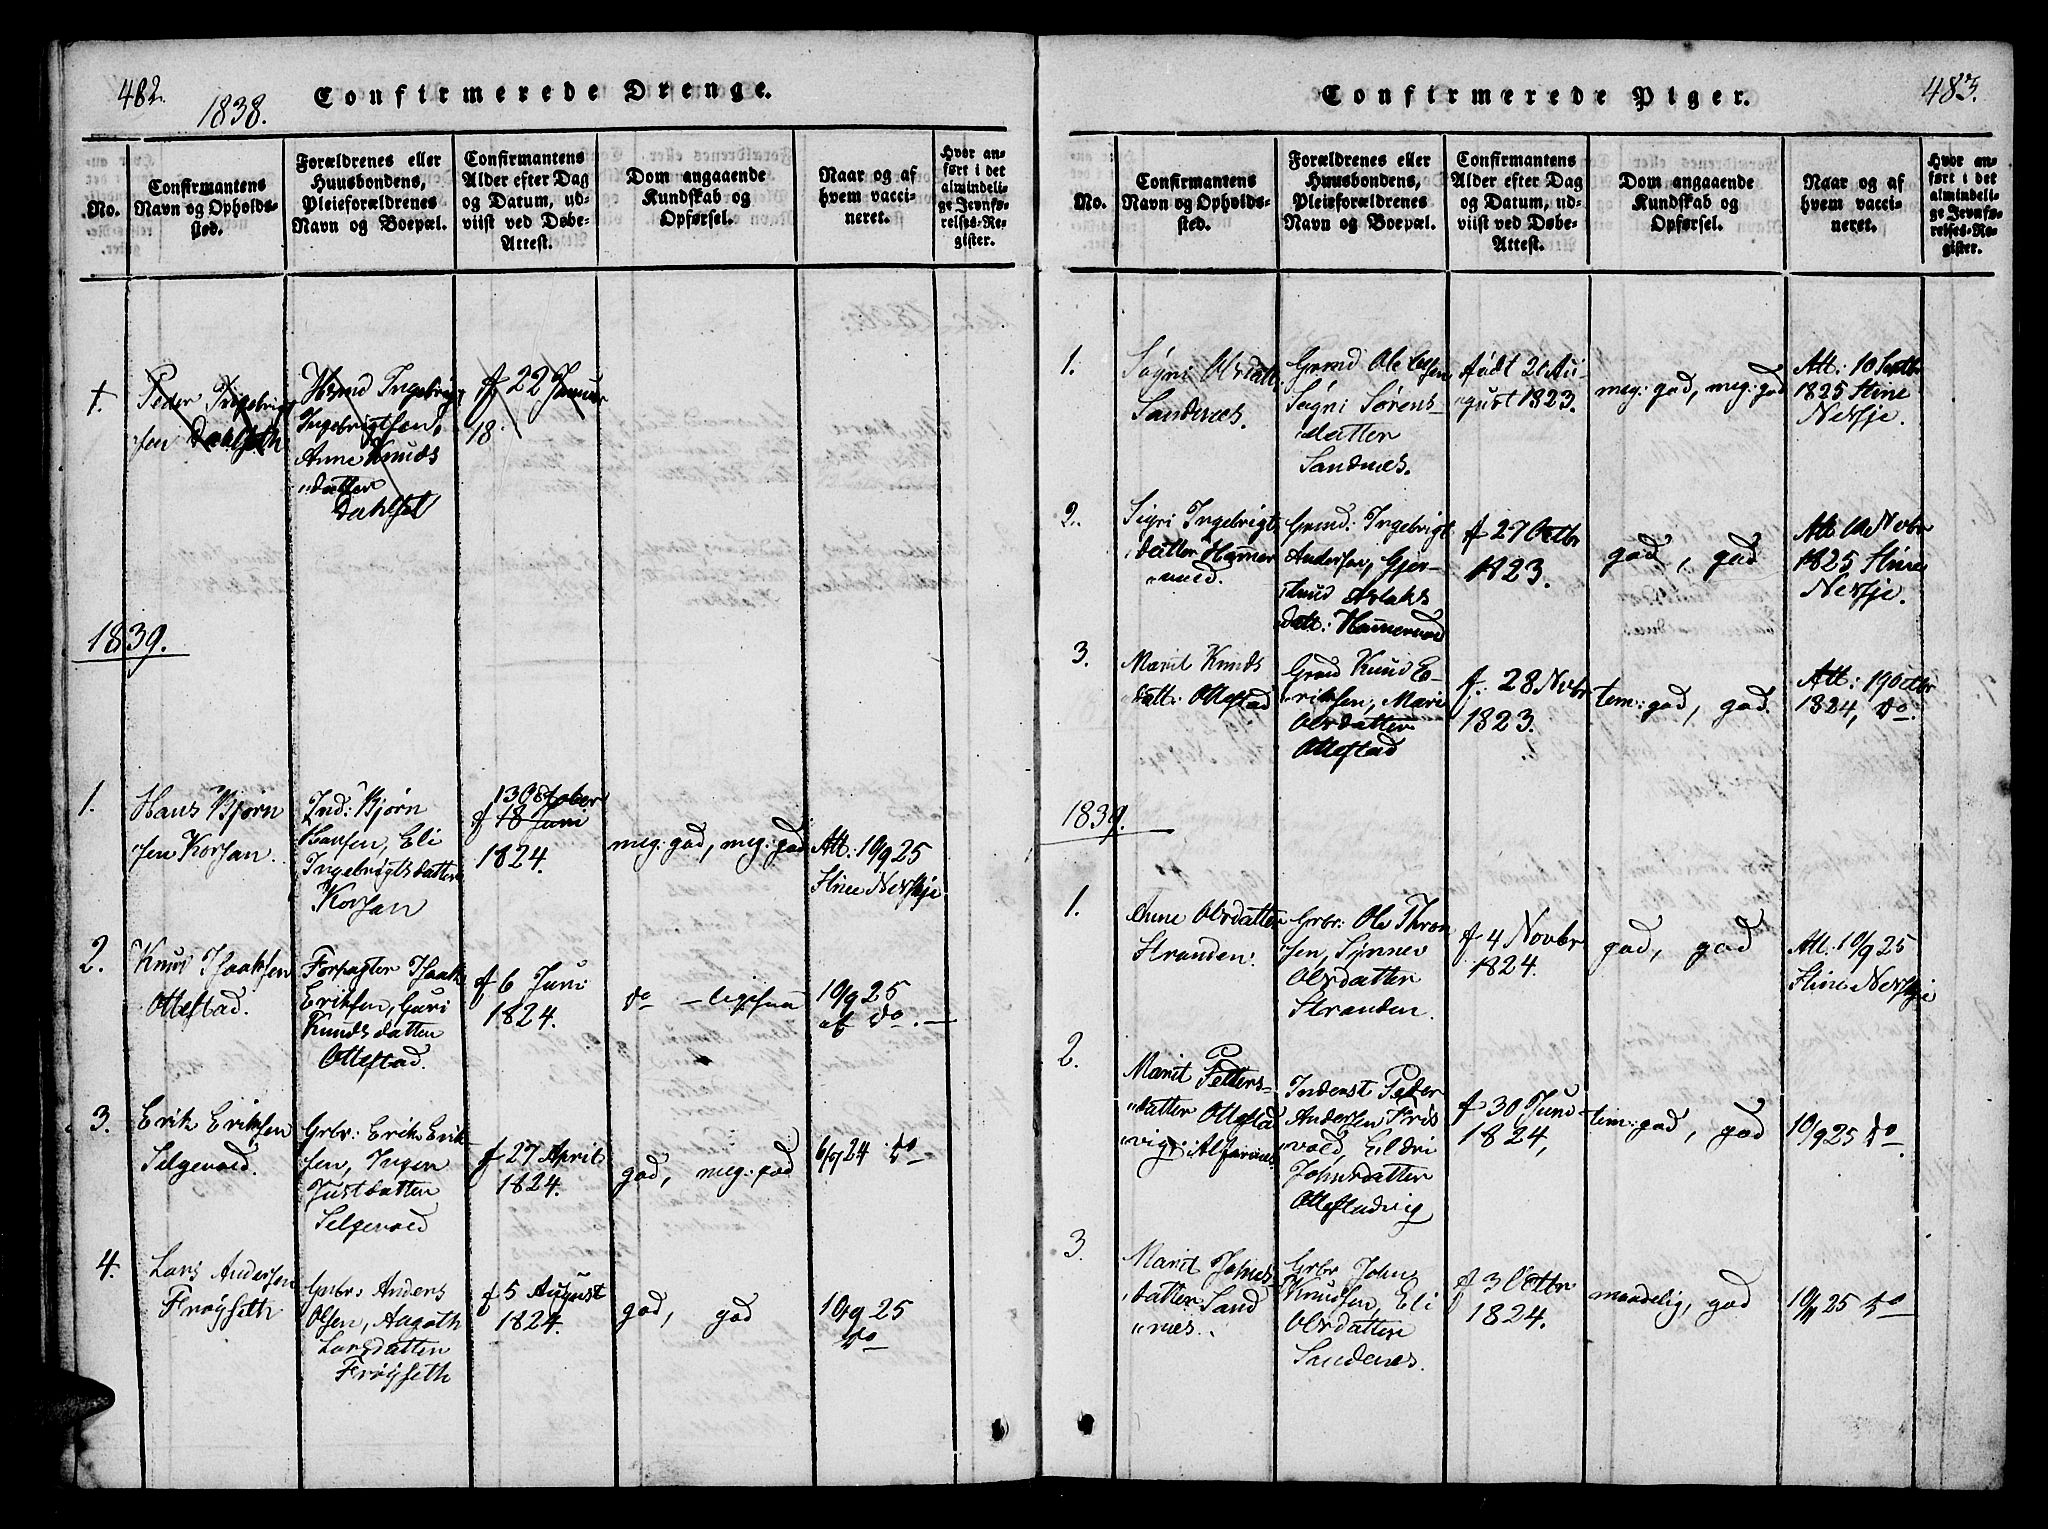 482.
1838.
Confirmerede Drenge.
No.
Confirmantens
Navn og Opholds-
sted.
Forældrenes eller
Huusbondens,
Pleieforældrenes
Navn og Boepæl.
Confirmantens
Alder efter Dag
og Datum, ud-
viist ved Døbe-
Attest.
Dom angaaende
Kundskab og
Opførsel.
Naar og af
hvem vacci-
neret.
Hvor an-
ført i det
almindeli-
ge Jevnfø-
relses-Re-
gister.
Peder Ingebrigt
sen Dahlseth
Ingebrigt
Ingebrigtsen,
Anne Knuds
"datter
Dahlset
f 22 Januar
18
1839.
1.
Hans Bjørn
sen Korsan.
Ind: Bjørn
Hansen, Eli
Ingebrigtsdatter
Korsan
13 October
f 18 Juni
1824.
meg: god, meg: god
Att: 10/9 25
Stine Nersje
2.
Knud Isaaksen
Ottestad.
Forpagter Isaak
Eriksen, Guri
Knudsdatter
Ottestad.
f 6 Juni
1824.
do
10/9 25
af do.
3.
Erik Eriksen
Selgevold.
Grbr: Erik Erik
sen, Inger
Justdatter
Selgevold
f 27 April
1824.
god, meg: god
6/9 24 do
4.
Lars Andersen
Frøyseth
Grbr: Anders
Olsen, Aagoth
Larsdatter
Frøyseth
f 5 August
1824.
god, god
10/9 25
do
483.
Confirmerede Piger.
No.
Confirmantens
Navn og Opholds-
sted.
Forældrenes eller
Huusbondens,
Pleieforældrenes
Navn og Boepæl.
Confirmantens
Alder efter Dag
og Datum, ud-
viist ved Døbe-
Attest.
Dom angaaende
Kundskab og
Opførsel.
Naar og af
hvem vacci-
neret.
Hvor an-
ført i det
almindeli-
ge Jevnfø-
relses-Re-
gister.
1.
Søgni Olsdatt:
Sandnes.
Grmd Ole Olsen
Søgni Sørens-
datter
Sandnes.
født 2 Au-
gust 1823.
meg: god, meg: god
Att: 10 Septbr
1825 Stine
Nersje.
2.
Sigri Ingebrigts
datter Hamer
"vold.
Grmd: Ingebrigt
Andersen, Gjer-
trud Aslaks
datt: Hamervold
f 27 Octbr
1823.
god, god
Att. 10 Novbr
1825 Stine
Nersje.
3.
Marit Knuds
datt: Ottestad
Grmd Knud E-
riksen, Mari
Olsdatter
Ottestad
f. 28 Novbr
1823.
tem: god, god.
Att: 19 Octbr
1824, do.
1839.
1.
Anne Olsdatter
Stranden.
Grbr: Ole Thron
sen, Synnev
Olsdatter
Stranden.
f 4 Novbr
1824.
god, god
Att. 10/9 25
Stine Nersje
2.
Marit Petters-
"datter Ottestad
"vig:
Inderst Peder
Andersen Kris
vold, Eldri
Johnsdatter
Ottestadvig
f 30 Juni
1824,
tem: god, god
10/9 25 do
3.
Marit Johns-
datter Sand
"nes.
Grbr John
Knudsen, Eli
Olsdatter
Sandenes.
f 3 Octbr
1824.
maadelig, god
10/11 25 do